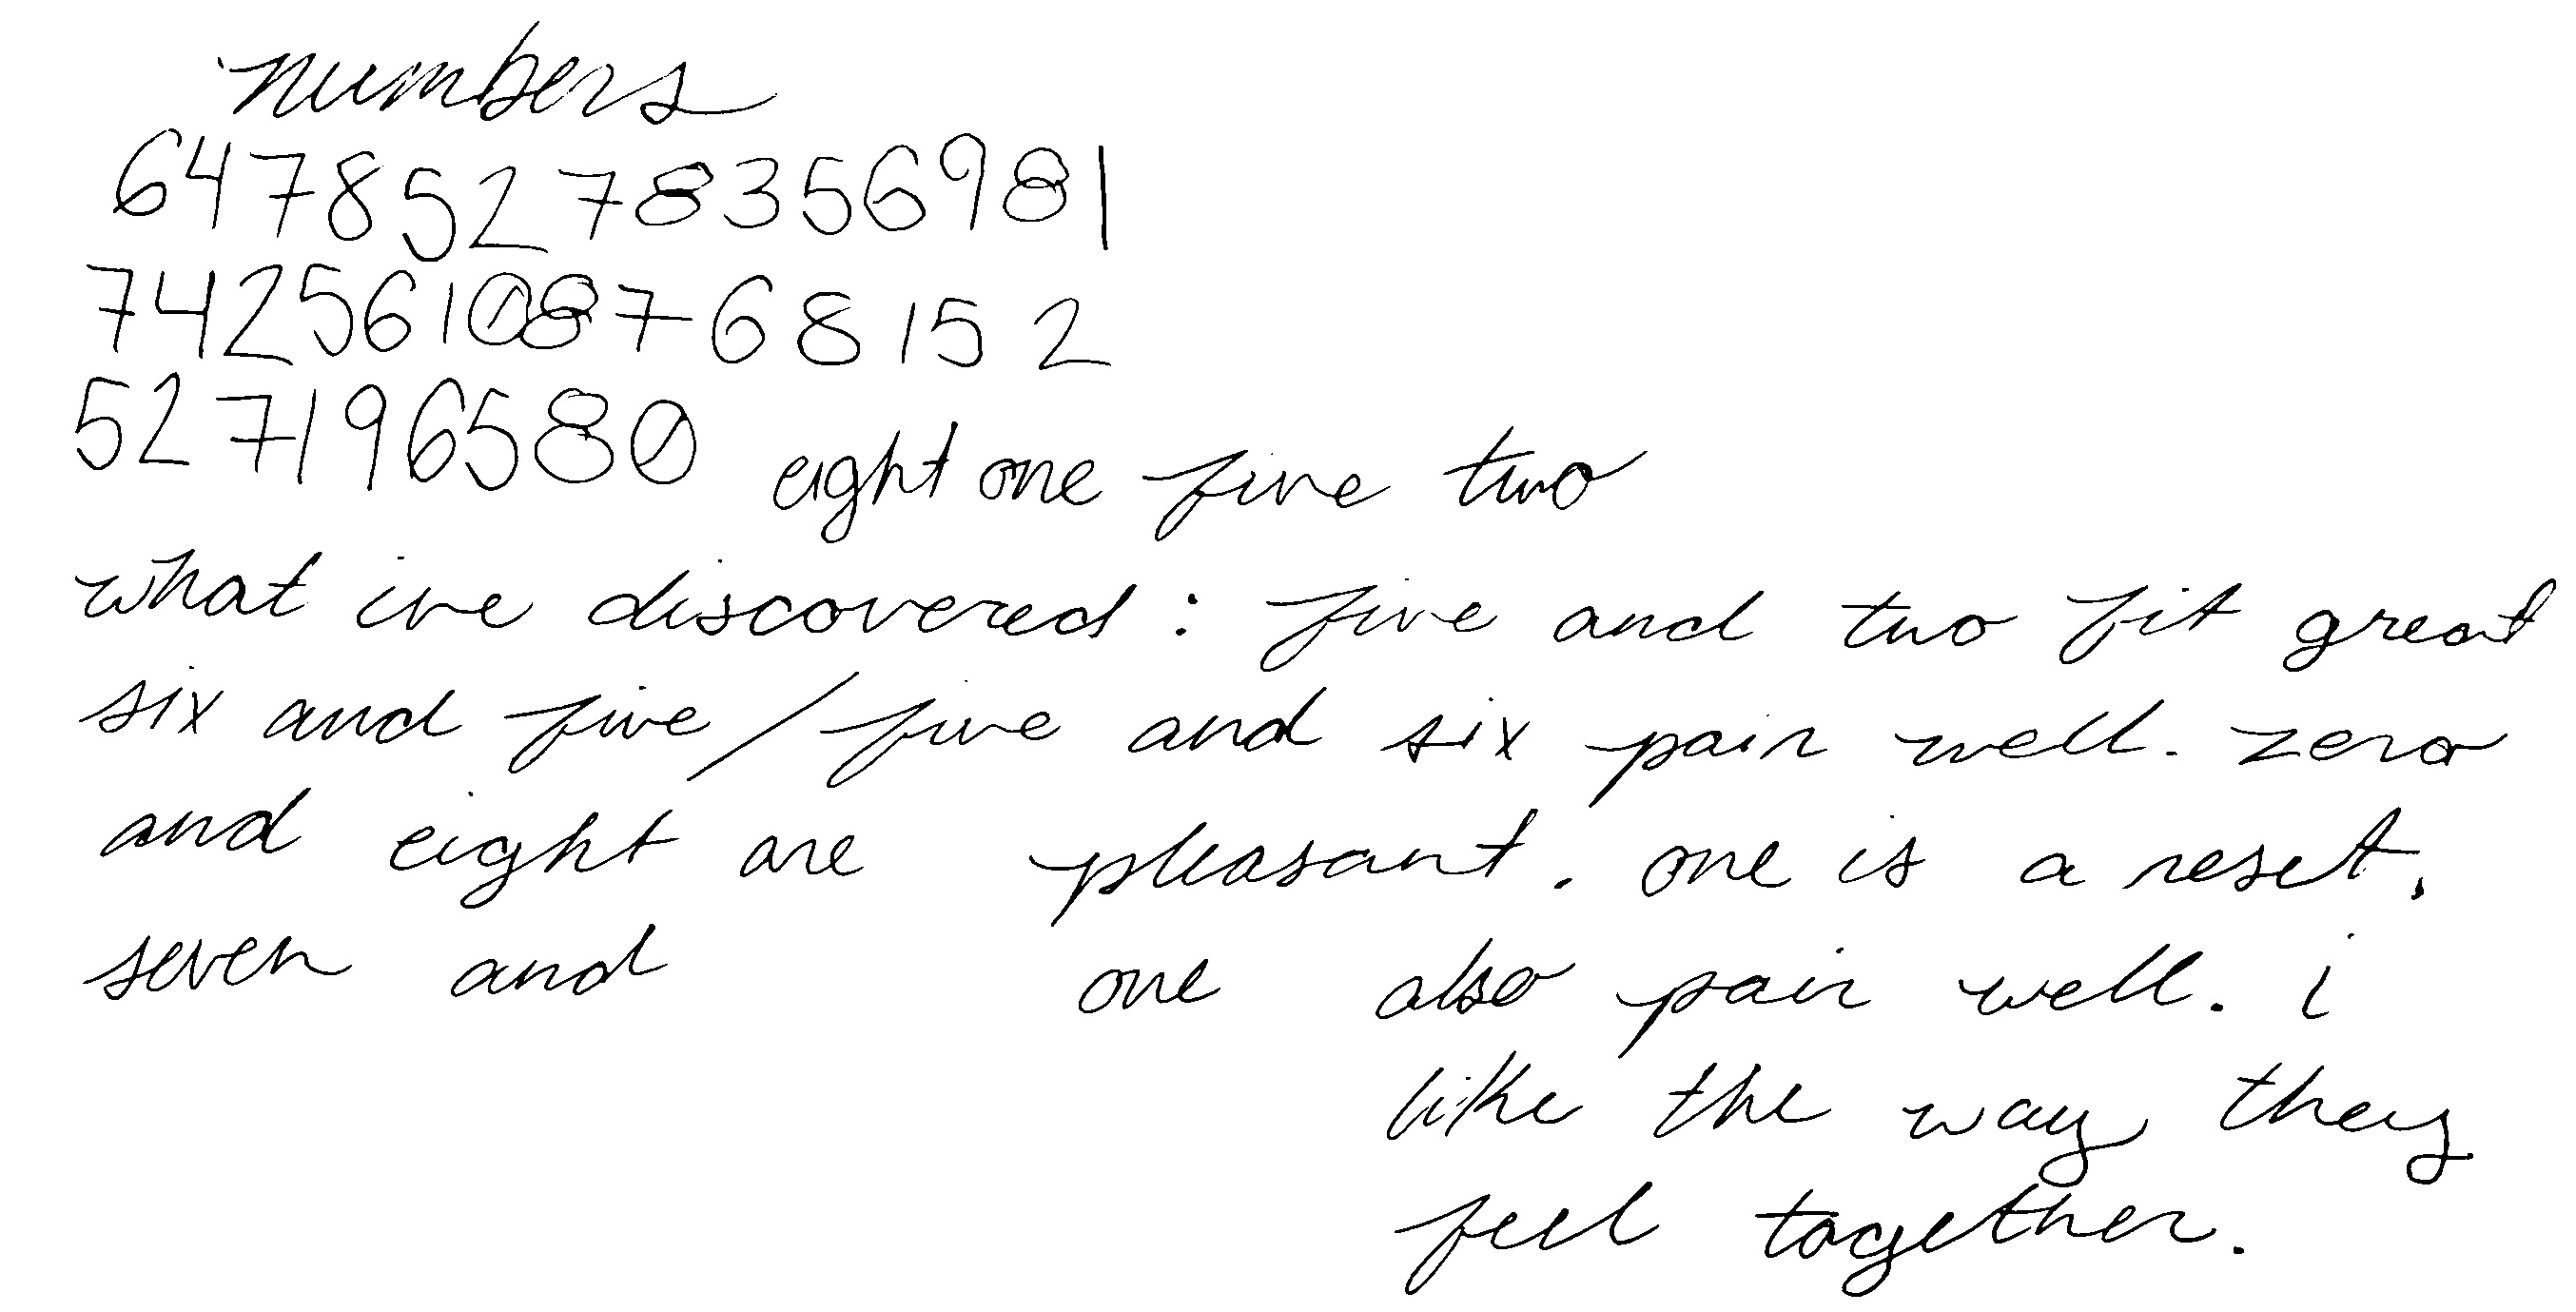 numbers
64785278356981
74256108768152
527196580 eight one five two
what ive discovered: five and two fit great
six and five/five and six pair well. zero
and eight are pleasant. one is a reset.
seven and one also pair well. i
like the way they
feel together.